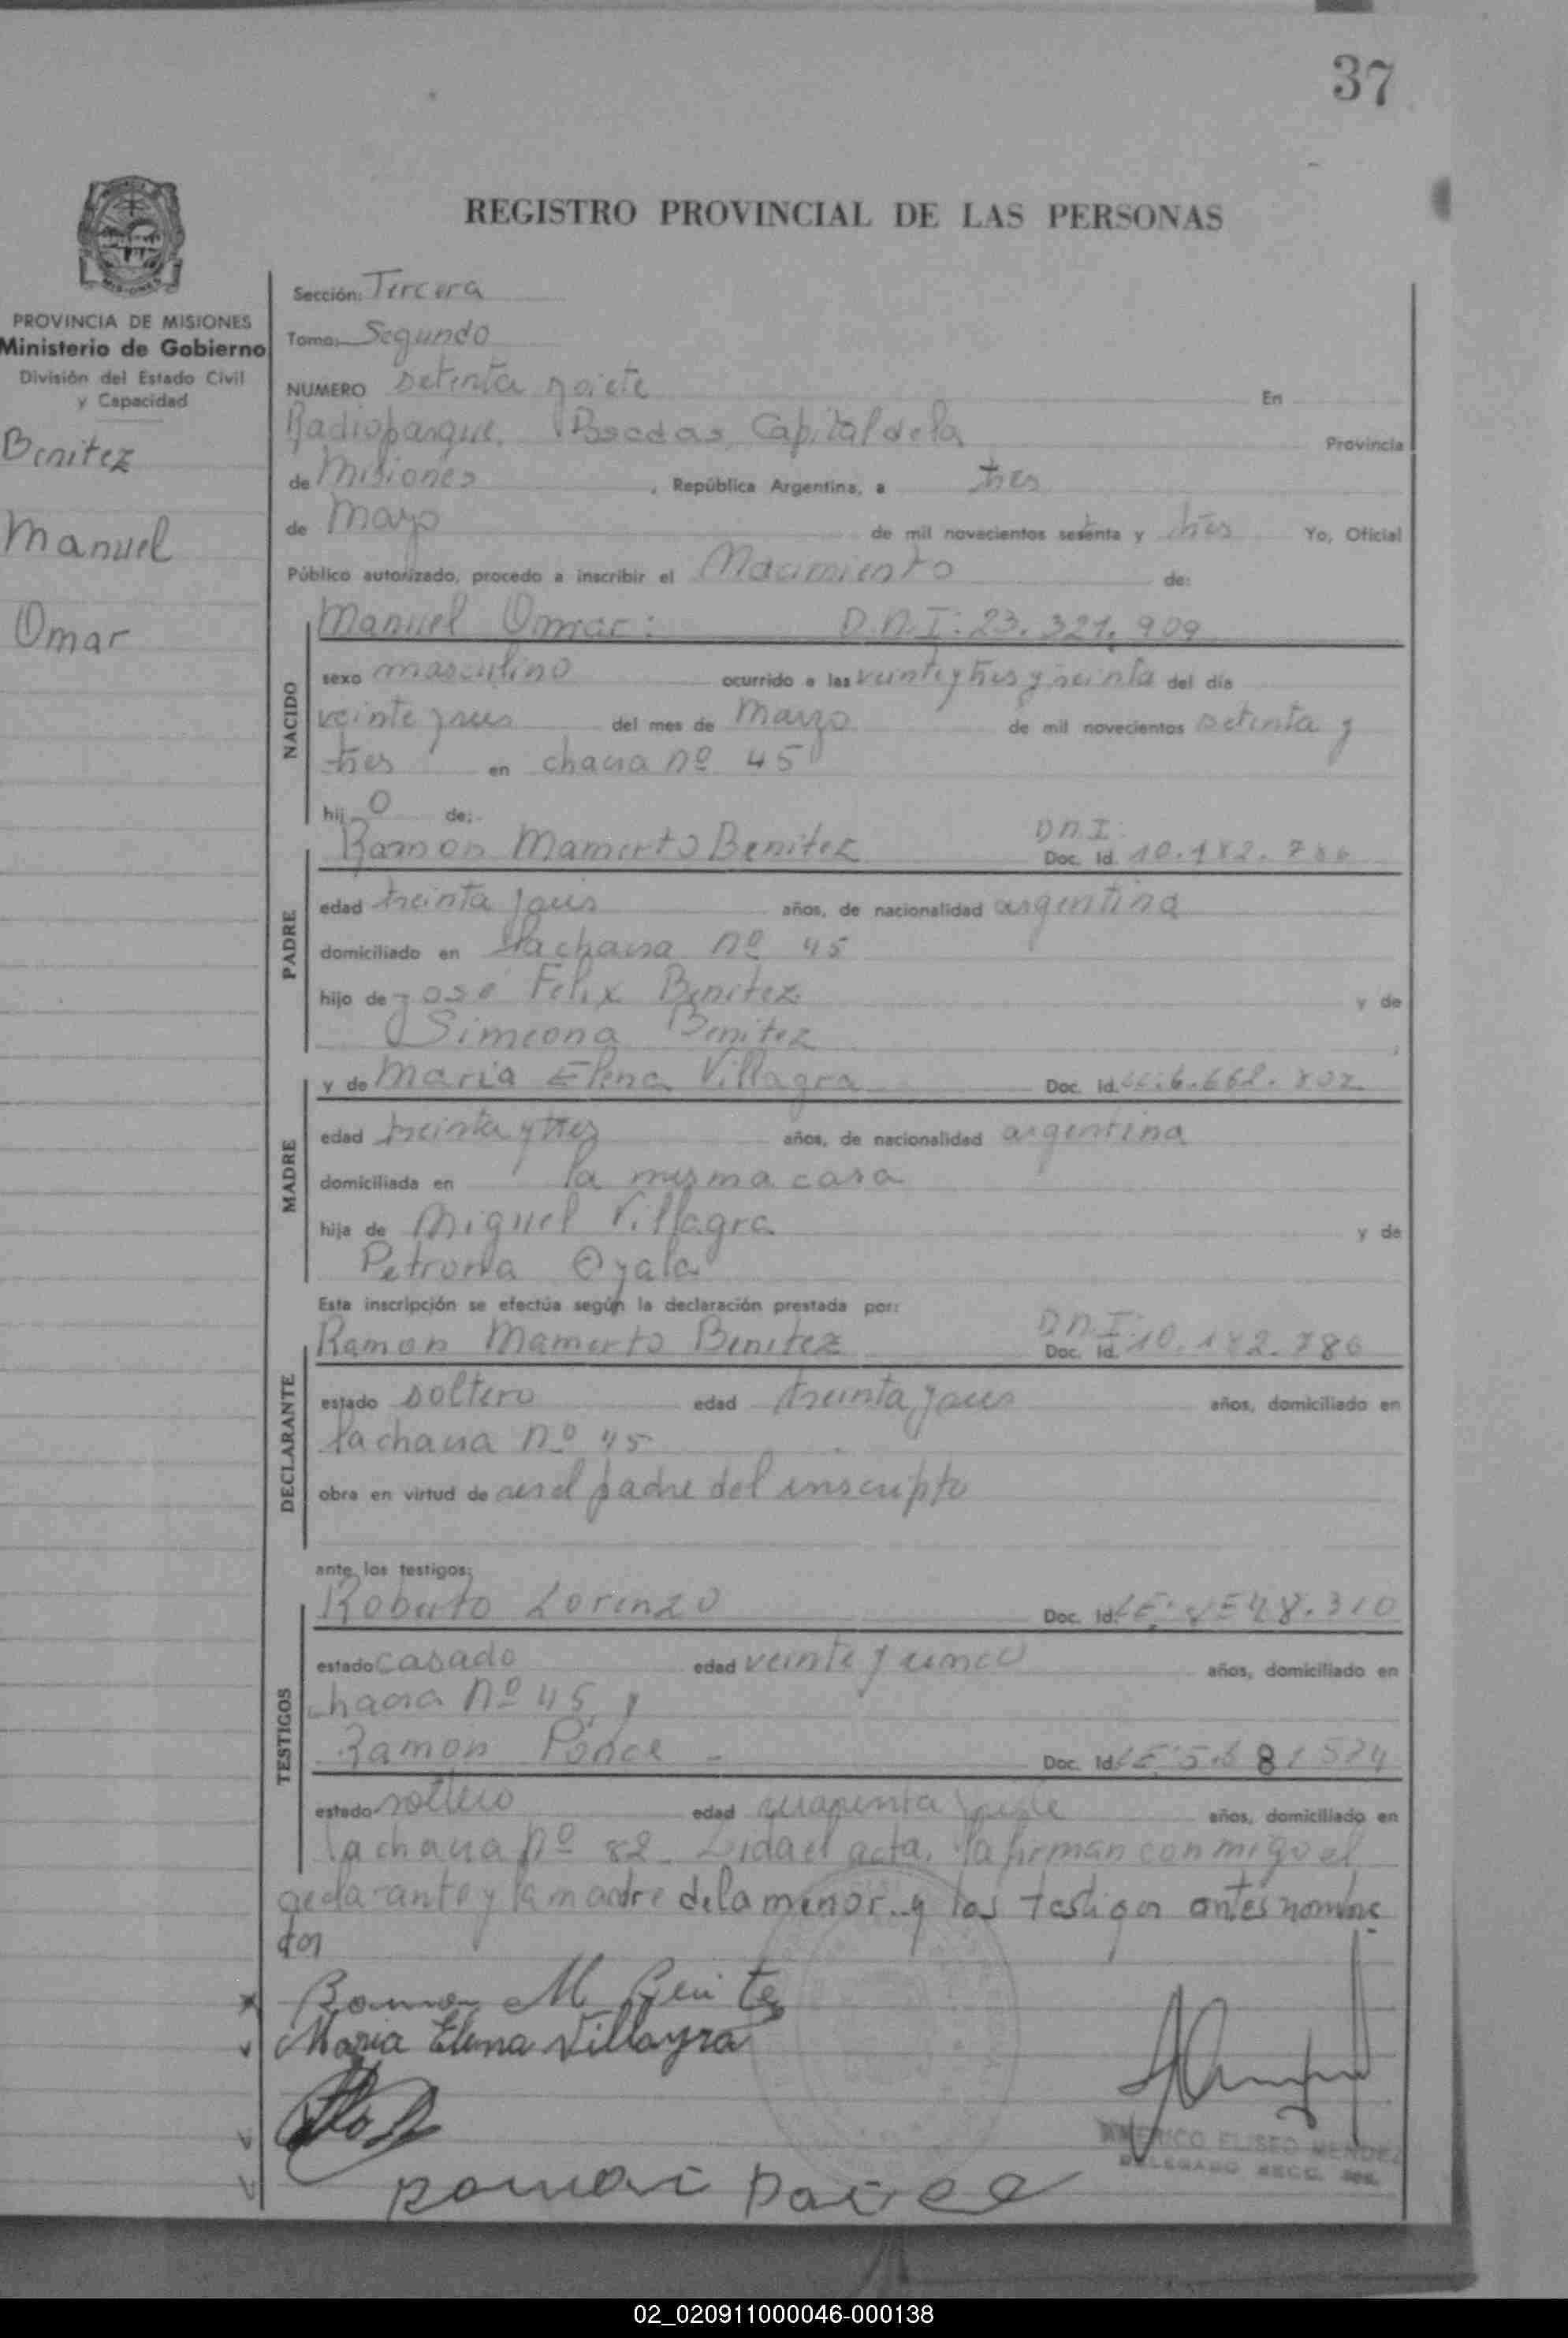 37
REGISTRO PROVINCIAL DE LAS PERSONAS
PROVINCIA DE MISIONES
Ministerio de Gobierno
División del Estado Civil
y Capacidad
Benitez
Manuel
Omar
Sección: Tercera
Tomo: Segundo
NUMERO setenta y siete En
Posadas, Capital de la Provincia
de Misiones, República Argentina, a tres
de Mayo de mil novecientos setenta y tres Yo, Oficial
Público autorizado, procedo a inscribir el Nacimiento de:
NACIDO
Manuel Omar: D.N.I: 23.321.909
sexo masculino ocurrido a las veinte y tres y treinta del día
veinte y seis del mes de Marzo de mil novecientos setenta y
tres en chacra nº 45
hij o de:
PADRE
Ramon Mamerto Benitez D.N.I: Doc. Id. 10.182.786
edad treinta y seis años, de nacionalidad argentina
domiciliado en la chacra nº 45
hijo de José Felix Benitez y de
Simeona Benitez
MADRE
y de Maria Elena Villagra Doc. Id. 6.668.802
edad treinta y tres años, de nacionalidad argentina
domiciliada en la misma casa
hija de Miguel Villagra y de
Petrona Ayala
Esta inscripción se efectúa según la declaración prestada por:
DECLARANTE
Ramon Mamerto Benitez D.N.I: Doc. Id. 10.182.786
estado soltero edad treinta y seis años, domiciliado en
la chacra nº 45
obra en virtud de ser el padre del inscripto
ante los testigos:
TESTIGOS
Roberto Lorenzo Doc. Id. LE: 48.310
estado casado edad veinte y cinco años, domiciliado en
chacra nº 45 y
Ramon Ponce - Doc. Id. LE: 5. 81524
estado soltero edad cuarenta años, domiciliado en
la chacra nº 82. Leida el acta, la firman conmigo el
declarante y la madre dela menor y los testigos antes nombra
dos
Ramon M Benitez
Maria Elena Villagra
Ramon Ponce
AMERICO ELISEO MENDEZ
DELEGADO SECC. 3ra.
02_020911000046-000138